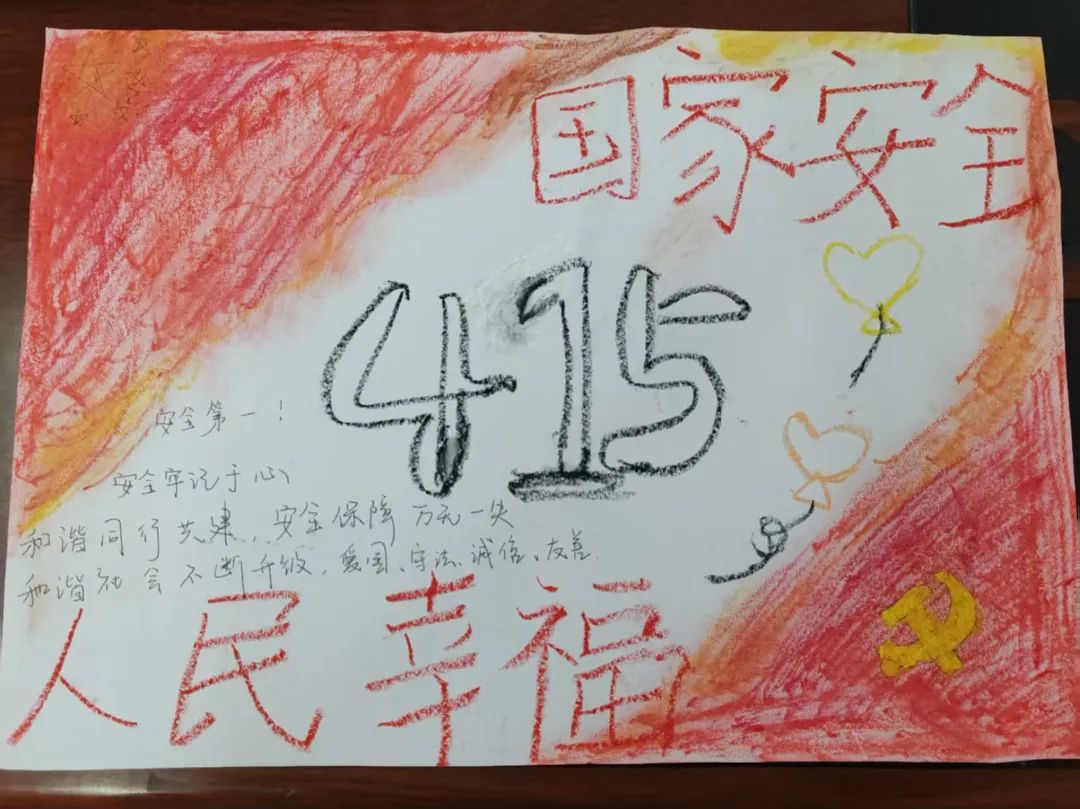 国家安全
415
安全第一！
安全牢记于心
和谐同行共建，安全保障万无一失
和谐社会不断升级，爱国、守法、诚信、友善.
人民幸福